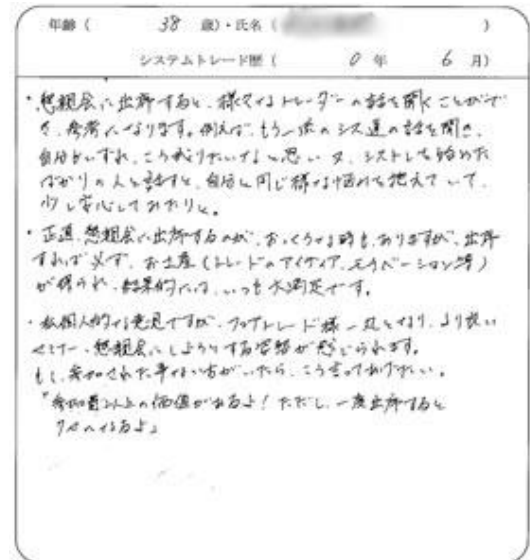 年齢（ 38 歳）・氏名（ ）
システムトレード歴（ 0 年 6 月）
・懇親会に出席すると、様々なトレーダーの話を聞くことがで
き、参考になります。例えば、もう一流のシス達の話を聞き、
自分もいずれ、こう成りたいなと思い、又、シストレを始めた
ばかりの人と話すと、自分と同じ様な悩みを抱えていて、
少し安心してみたりと。
・正直、懇親会に出席するのが、おっくうな時も、ありますが、出席
すれば必ず、お土産（トレードのアイディア、モチベーション等）
が得られ、結果的には、いつも大満足です。
・私個人的な意見ですが、フェアトレード様一丸となり、より良い
セミナー、懇親会にしようとする姿勢が感じられます。
もし、参加された事ない方がいたら、こう言ってあげたい。
「参加費以上の価値があるよ！ただし、一度出席すると
クセになるよ」